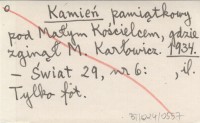 Kamień pamiątkowy
pod Małym Kościelcem, gdzie
zginął M. Karłowicz. 1934.
– Świat 29, nr 6: , il.
Tylko fot.